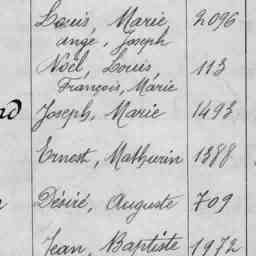 Louis Marie 2096
ange, Joseph
Noël, Louis 113
François, Marie
Joseph, Marie 1493
Ernest, Mathurin 1388
Désiré, Auguste 709
Jean, Baptiste 1972